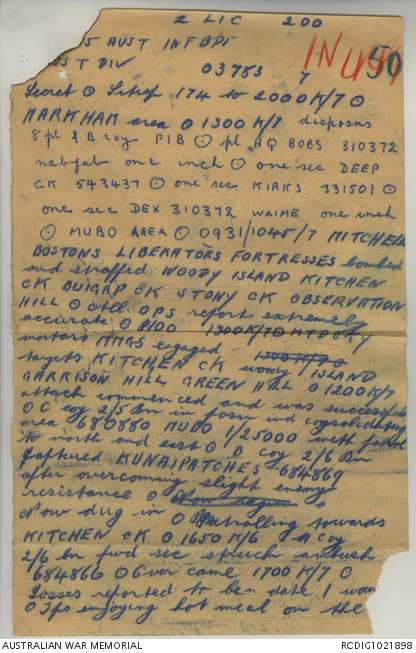 2 LIC 200
15 AUST INF BDE
ST DIV 03783 7
IN 4 50
Secret O Sitrep 174 to 2000K/7 O
MARKHAM area O 1300K/7 disposns
8 pl & B coy PIB O pl HQ 8085 310372
nabgab one inch O one sec DEEP
CK 543437 O one sec KIRKS 331501 O
one sec DEX 310372 WAIME one inch
O MUBO AREA O 0931/1045/7 MITCHELL
BOSTONS LIBERATORS FORTRESSES bombed
and straffed WOODY ISLAND KITCHEN
CK BUIGAP CK STONY CK OBSERVATION
HILL O OPS report extremely
accurate O 1300K/7 O
mortars MMGS engaged 1300K/7 O
targets KITCHEN CK woody ISLAND
GARRISON HILL GREEN HILL O 1200K/7
attack commenced and was successful
O C coy 2/5 Bn in posn and consolidating
area 680880 MUBO 1/25000 with patrol
to north and east O B coy 2/6 Bn
captured KUNAI PATCHES 684869
after overcoming slight enemy
resistance O Now dug in
Now dug in O Patrolling towards
KITCHEN CK O 1650K/6 A coy
2/6 bn fwd sec struck ambush
684866 O Over came 1700K/7 O
Losses reported to bn date 1 wound
O Tps enjoying hot meal on the
AUSTRALIAN WAR MEMORIAL RCDIG1021898